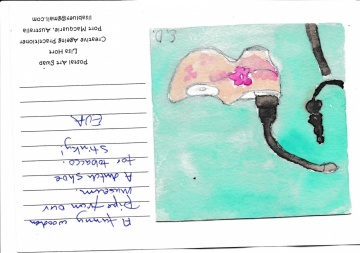 Postal Art Swap
Lisa Hort
Creative Ageing Practitioner
Port Macquarie, Australia
lisablues@gmail.com
A funny wooden
Pipe from our
museum.
A dutch shoe
for tobacco.
Stinky!
EVA